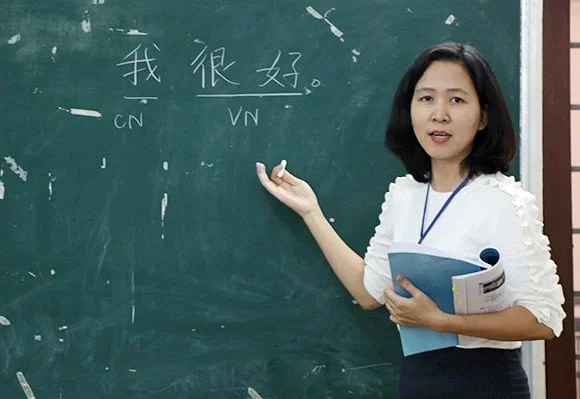 我 很 好。
CN VN